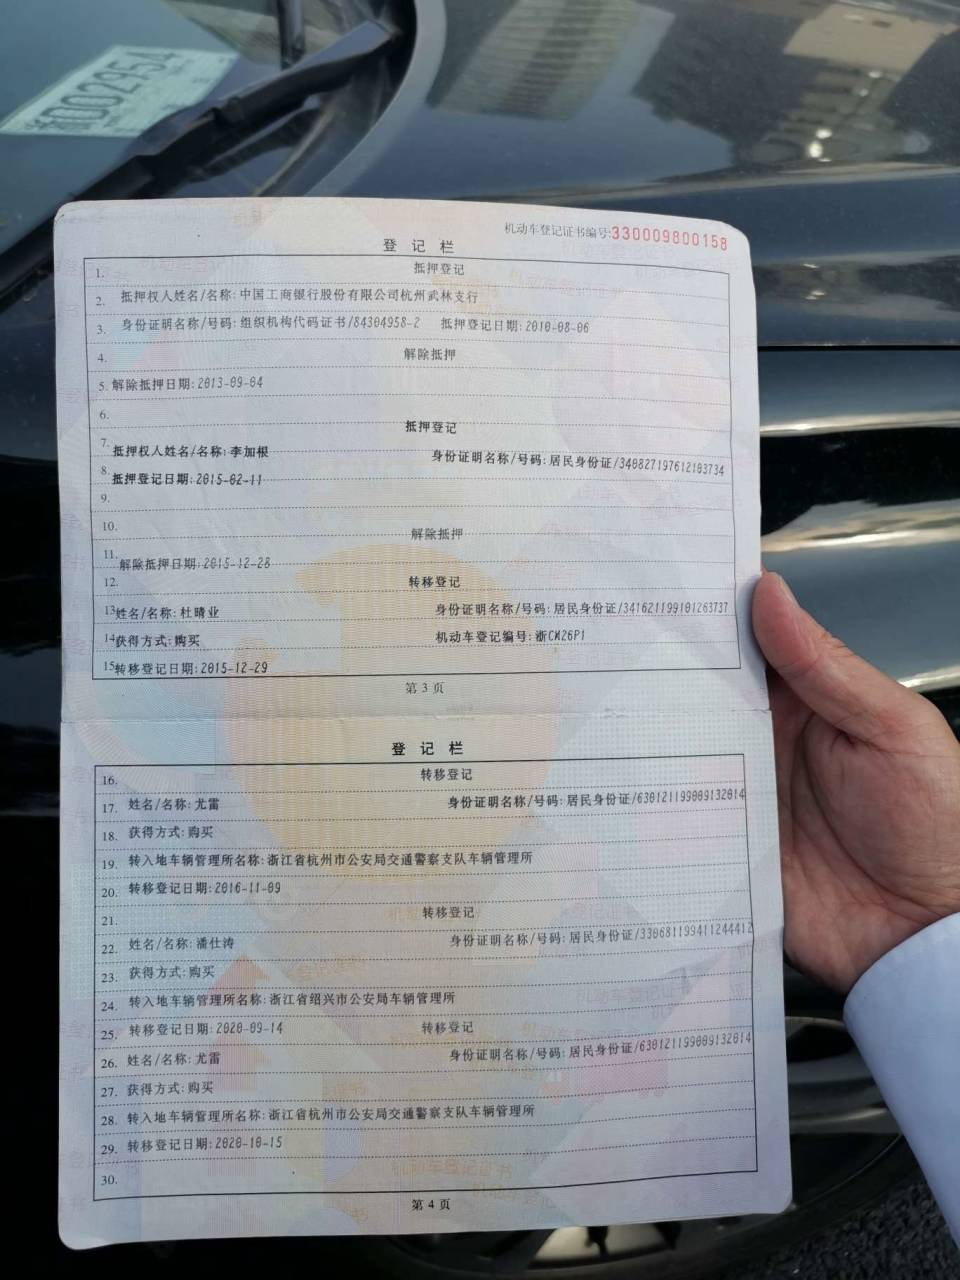 D02954
机动车登记证书编号:330009800158
登 记 栏
1. 抵押登记
2. 抵押权人姓名/名称:中国工商银行股份有限公司杭州武林支行
3. 身份证明名称/号码:组织机构代码证书/84304958-2 抵押登记日期:2010-08-06
4. 解除抵押
5. 解除抵押日期:2013-09-04
6.
抵押登记
7. 抵押权人姓名/名称:李加根 身份证明名称/号码:居民身份证/340827197612103734
8. 抵押登记日期:2015-02-11
9.
10. 解除抵押
11. 解除抵押日期:2015-12-28
12. 转移登记
13. 姓名/名称:杜晴业 身份证明名称/号码:居民身份证/341621199101263737
14. 获得方式:购买 机动车登记编号:浙CW26P1
15. 转移登记日期:2015-12-29
第 3 页
登 记 栏
16. 转移登记
17. 姓名/名称:尤雷 身份证明名称/号码:居民身份证/630121199009132014
18. 获得方式:购买
19. 转入地车辆管理所名称:浙江省杭州市公安局交通警察支队车辆管理所
20. 转移登记日期:2016-11-09
21. 转移登记
22. 姓名/名称:潘仕涛 身份证明名称/号码:居民身份证/330681199411244412
23. 获得方式:购买
24. 转入地车辆管理所名称:浙江省绍兴市公安局车辆管理所
25. 转移登记日期:2020-09-14 转移登记
26. 姓名/名称:尤雷 身份证明名称/号码:居民身份证/630121199009132014
27. 获得方式:购买
28. 转入地车辆管理所名称:浙江省杭州市公安局交通警察支队车辆管理所
29. 转移登记日期:2020-10-15
30.
第 4 页